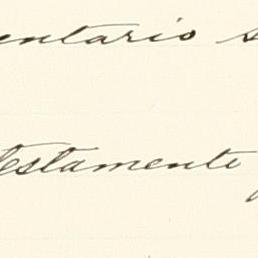 entario s
testamento